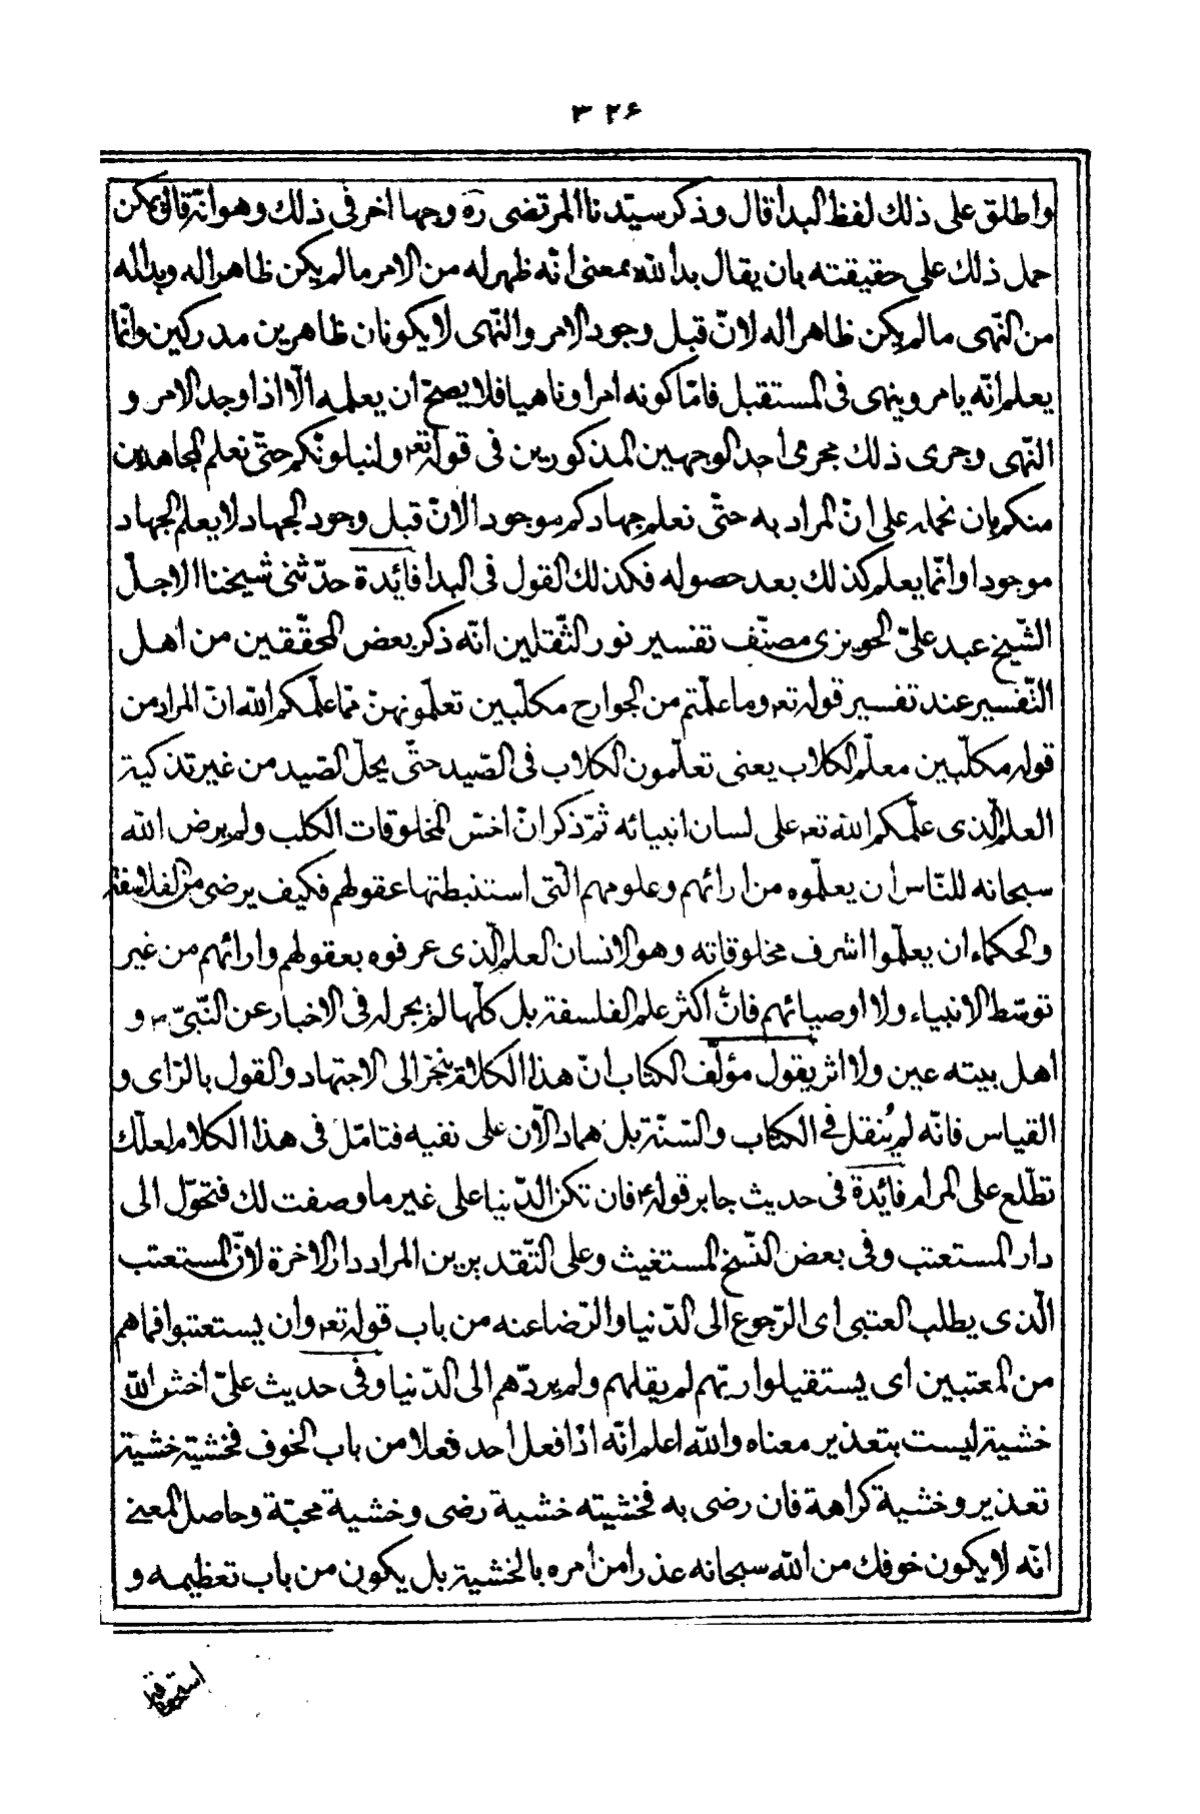 ٣٢۶
واطلق على ذلك لفظ البدا قال وذكر سيّدنا المرتضى ره وجها اخر فى ذلك وهو انّه قال يمكن
حمل ذلك على حقيقته بان يقال بدا لله بمعنى انّه ظهر له من الامر ما لم يكن ظاهرا له وبدا له
من النّهى ما لم يكن ظاهرا له لانّ قبل وجود الامر والنّهى لا يكونان ظاهرين مدركين وانّما
يعلم انّه يامر وينهى فى المستقبل فامّا كونه امرا وناهيا فلا يصحّ ان يعلمه الّا اذا وجد الامر و
النّهى وجرى ذلك مجرى احد الوجهين المذكورين فى قوله تعه ولنبلونّكم حتّى نعلم المجاهدين
منكم بان نحمله على انّ المراد به حتّى نعلم جهادكم موجودا لانّ قبل وجود الجهاد لا يعلم الجهاد
موجودا وانّما يعلم كذلك بعد حصوله فكذلك القول فى البدا فائدة حدّثنى شيخنا الاجلّ
الشّيخ عبد علىّ الحويزى مصنّف تفسير نور الثّقلين انّه ذكر بعض المحقّقين من اهل
التّفسير عند تفسير قوله تعه وما علّمتم من الجوارح مكلّبين تعلّمونهنّ ممّا علّمكم الله انّ المراد من
قوله مكلّبين معلّم الكلاب يعنى تعلّمون الكلاب فى الصّيد حتّى يحلّ الصّيد من غير تذكية
العلم الّذى علّمكم الله تعه على لسان انبيائه ثمّ ذكر انّ اخسّ المخلوقات الكلب ولم يرض الله
سبحانه للنّاس ان يعلّموه من ارائهم وعلومهم الّتى استنبطتها عقولهم فكيف يرضى من الفلاسفة
والحكماء ان يعلّموا اشرف مخلوقاته وهو الانسان العلم الّذى عرفوه بعقولهم وارائهم من غير
توسّط الانبياء ولا اوصيائهم فانّ اكثر علم الفلسفة بل كلّها لم يجر له فى الاخبار عن النّبىّ ص و
اهل بيته عين ولا اثر يقول مؤلّف الكتاب انّ هذا الكلام ينجرّ الى الاجتهاد والقول بالرّاى و
القياس فانّه لم يُنقل فى الكتاب والسّنّة بل هما دالّان على نفيه فتامّل فى هذا الكلام لعلّك
تطّلع على المرام فائدة فى حديث جابر قوله ع فان تكن الدّنيا على غير ما وصفت لك فتحوّل الى
دار المستعتب وفى بعض النّسخ المستغيث وعلى التّقديرين المراد دار الاخرة لانّ المستعتب
الّذى يطلب العتبى اى الرّجوع الى الدّنيا والرّضا عنه من باب قوله تعه وان يستعتبوا فما هم
من المعتبين اى يستقيلوا ربّهم لم يقلهم ولم يردّهم الى الدّنيا وفى حديث علىّ اخش الله
خشية ليست بتعذير معناه والله اعلم انّه اذا فعل احد فعلا من باب الخوف فخشيته خشية
تعذير وخشية كراهة فان رضى به فخشيته خشية رضى وخشية محبّة وحاصل المعنى
انّه لا يكون خوفك من الله سبحانه عذرا من امره بالخشية بل يكون من باب تعظيمه و